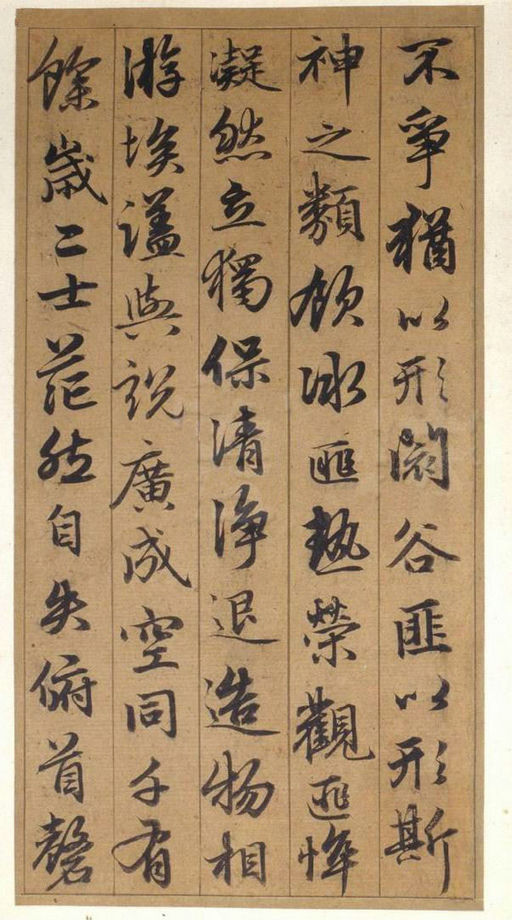 不爭猶以形閟谷匪以形斯
神之類飲冰匪熱榮觀匪悴
凝然立獨保清淨退造物相
游埃壒與說廣成空同千有
餘歲二士茫然自失俯首磬